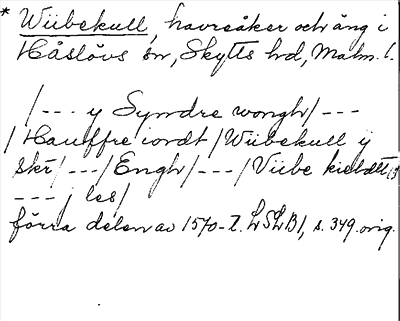 * Wiibekull, havreåker och äng i
Håslövs sn, Skytts hd, Malm. l.
/--- y Syndre wongh/---
/Hauffre iordt/Wiibekull y
skr/---/Engh/---/Viibe kieldt
---/ les/
förra delen av 1570-t. LSLB1, s. 349. orig.